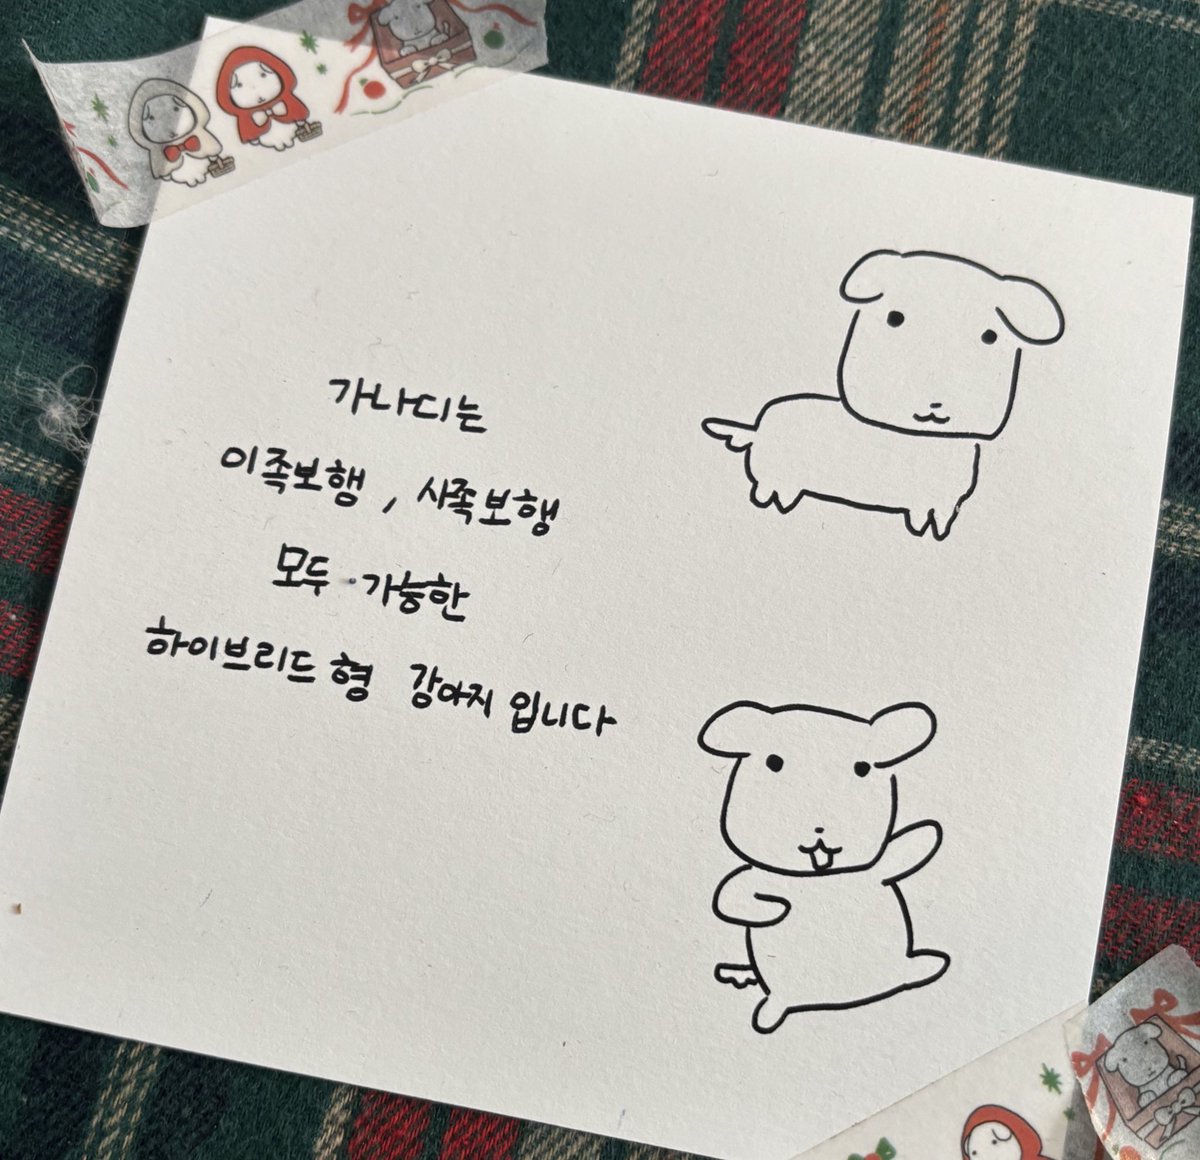 가나디는
이족보행, 사족보행
모두 가능한
하이브리드 형 강아지 입니다